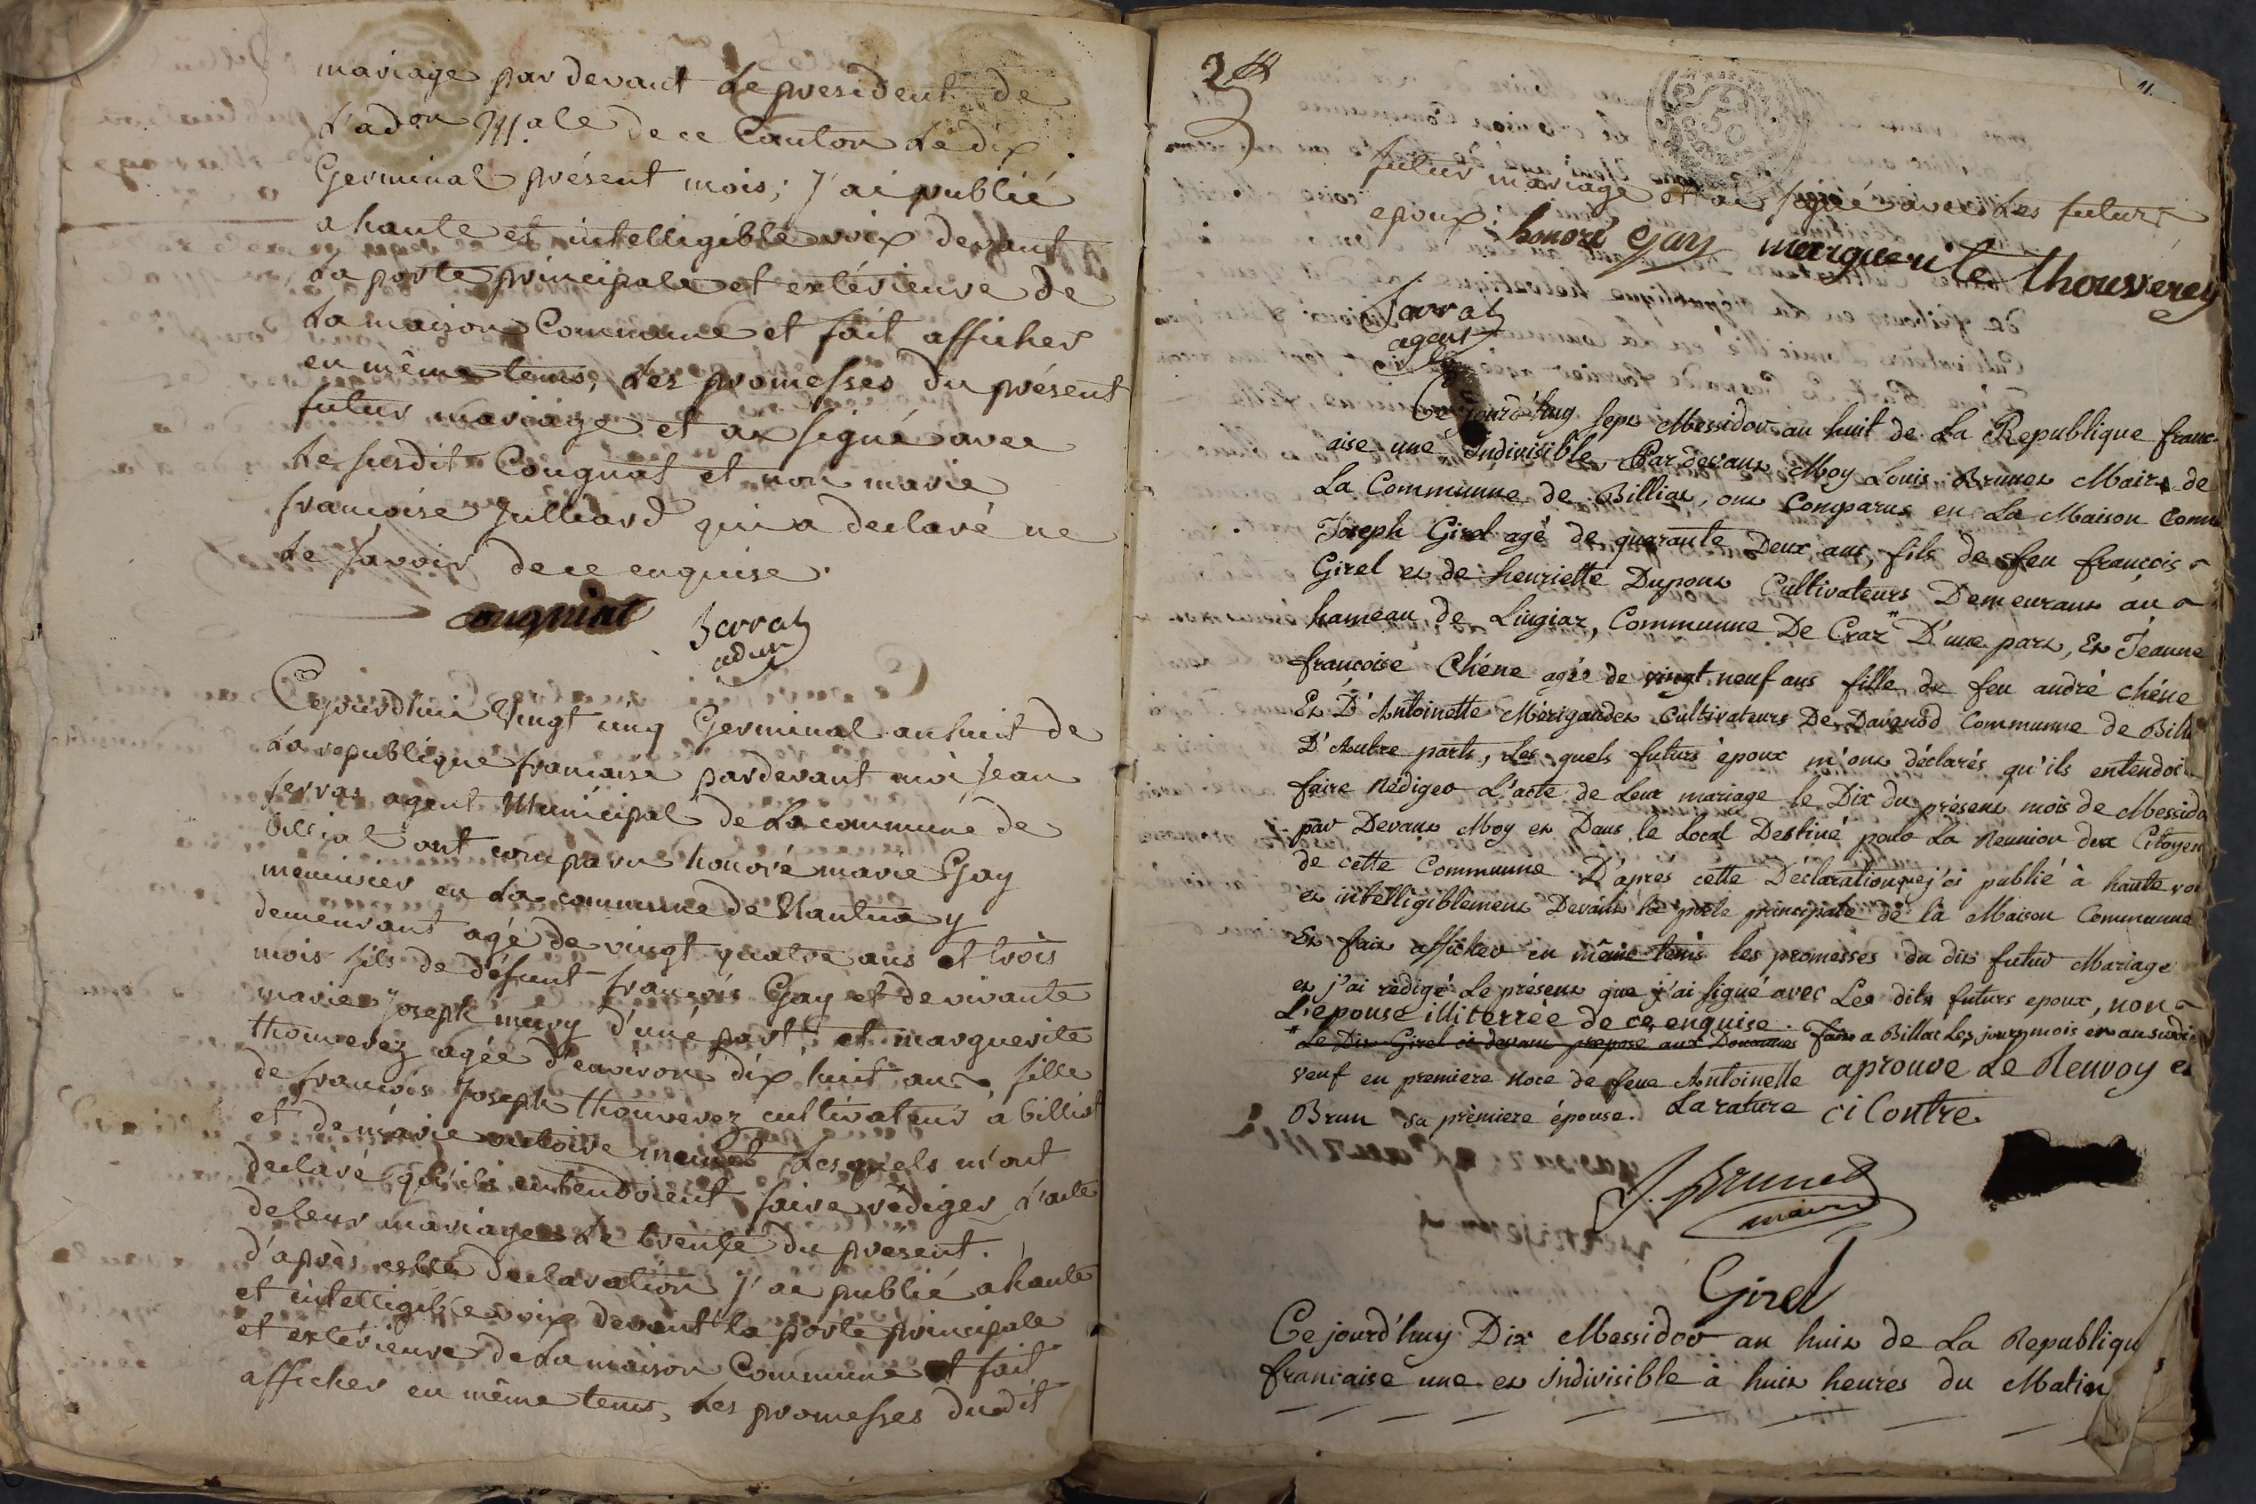 mariage par devant Le president de
L'adon M.ale de ce Canton Le dix
Germinal présent mois; J'ai publié
a haute et intelligible voix devant
La porte principale et extérieure de
La maison Commune et fait afficher
en même tems, Les promesses du présent
futur mariage et ai signé avec
Le susdit Cougnat et non marie
françoise Julliard qui a declaré ne
Le savoir de ce enquise.
cougniat Serraz
adjun
Cejourdhui Vingt cinq Germinal an huit de
La republique francaise pardevant moi Jean
Serraz agent Municipal de La commune de
Billiat ont comparu honoré marie Gay
menuisier en La commune de Nantua y
demeurant agé de vingt quatre ans et trois
mois fils de défunt françois Gay et de vivante
marie Joseph mury d'une part, et marguerite
thouverez agée d'environ dix huit ans fille
de françois Joseph thouverez cultivateur a billiat
et de marie antoine Lesquels m'ont
declaré qu'ils entendoient faire rédiger L'acte
de leur mariage Le trente du présent.
d'après cette Declaration J'ai publié a haute
et intelligible voix devant la porte principale
et extérieure de La maison Commune et fait
afficher en même tems, Les promesses dudit
2
50
futur mariage et ai signé avec Les futurs
epoux. honoré gay marguerite thouverey
Serraz
agent
Ce jourd'huy sept Messidor an huit de La Republique franc
aise une Indivisible Par devant Moy Louis Brunet Maire de
La Communne de Billiat, ont Comparus en La Maison Comm
Joseph Girel agé de quarante Deux ans, fils de feu françois
Girel et de henriette Dupont Cultivateurs Demeurant au
hameau de Lingiaz, Communne De Craz" D'une part, Et Jeanne
francoise Chéne agée de vingt neuf ans fille de feu andré chéne
Et D'Antoinette Mérigandet Cultivateurs De Davanod Communne de Billi
D'Autre parts, Les quels futurs époux m'ont déclarés qu'ils entendoi
faire Rédiger L'acte de Leur mariage le Dix du présent mois de Messido
par Devant Moy et Dans le Local Destiné pour La Reunion des Citoyen
de cette Communne D'après cette Déclaration que j'ai publié à haute voi
et intelligiblement Devant la porte principale de la Maison Communne
Et fait afficher en même tems les promesses du dit futur Mariage
et j'ai rédigé Le présent que j'ai signé avec Les dits futurs epoux, non
L'épouse illiterrée de ce enquise. fait a Billat Les jours mois et an susdit
" Le Dit Girel ci devant préposé aux Douannes
veuf en premiere Noce de feue Antoinette aprouve Le Renvoy et
Brun sa prèmiere épouse. La rature ci Contre.
L. Brunet
maire
Girel
Ce jourd'huy Dix Messidor an huit de La Republiqu
francaise une et indivisible à huit heures du Matin